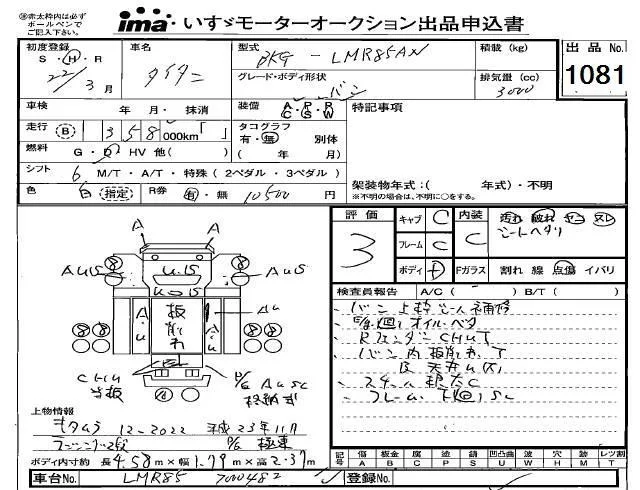 ㊟赤太枠内は必ず
ボールペンで
ご記入下さい。
ima いすゞモーターオークション出品申込書
初度登録 S・H・R 22年 3月
車名 タイタン
型式 BKG - LMR85AN
グレード・ボディ形状 バン
積載 (kg)
排気量 (cc) 3000
出品 No. 1081
車検 年 月・抹消
走行 B 1 3 5 8 000km「 」
燃料 G・D・HV 他( )
シフト 6 M/T・A/T・特殊 (2ペダル・3ペダル)
色 白 指定 R券 有・無 10500 円
装備 A・P・R C S W
タコグラフ 有・無 別体
( 年 月)
特記事項
架装物年式:( 年式)・不明
※不明の場合は、不明に○をする。
評価 3
キャブ C
フレーム C
ボディ D
内装 C
Fガラス
汚れ 破れ ヤニ スレ
シートヘタリ
割れ 線 点傷 イバリ
検査員報告 A/C ( ) B/T ( )
バン上枠
オイルベタ
RフェンダーCHUT
バン内板削れ、T
スチール
フレーム下廻りSC
A
A
AU15
U.15
AU15
板削れ
A.U
CHU
P/G AUSC
格納式
上物情報
キタムラ 12-2022 平成23年11月
ラッシング2段 P/G 極東
ボディ内寸約 長4.58m×幅1.79m×高2.37m
記号 傷A 板金B 腐C 塗P 錆S 凹凸U 曲W 穴H 外M レツ割T
車台No. LMR85 7000482
登録No.